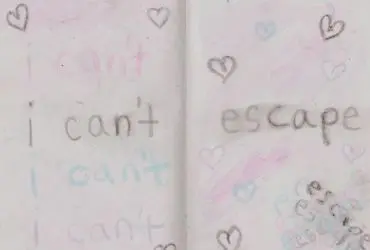 i can't
i can't escape
i can't
i can't
escape